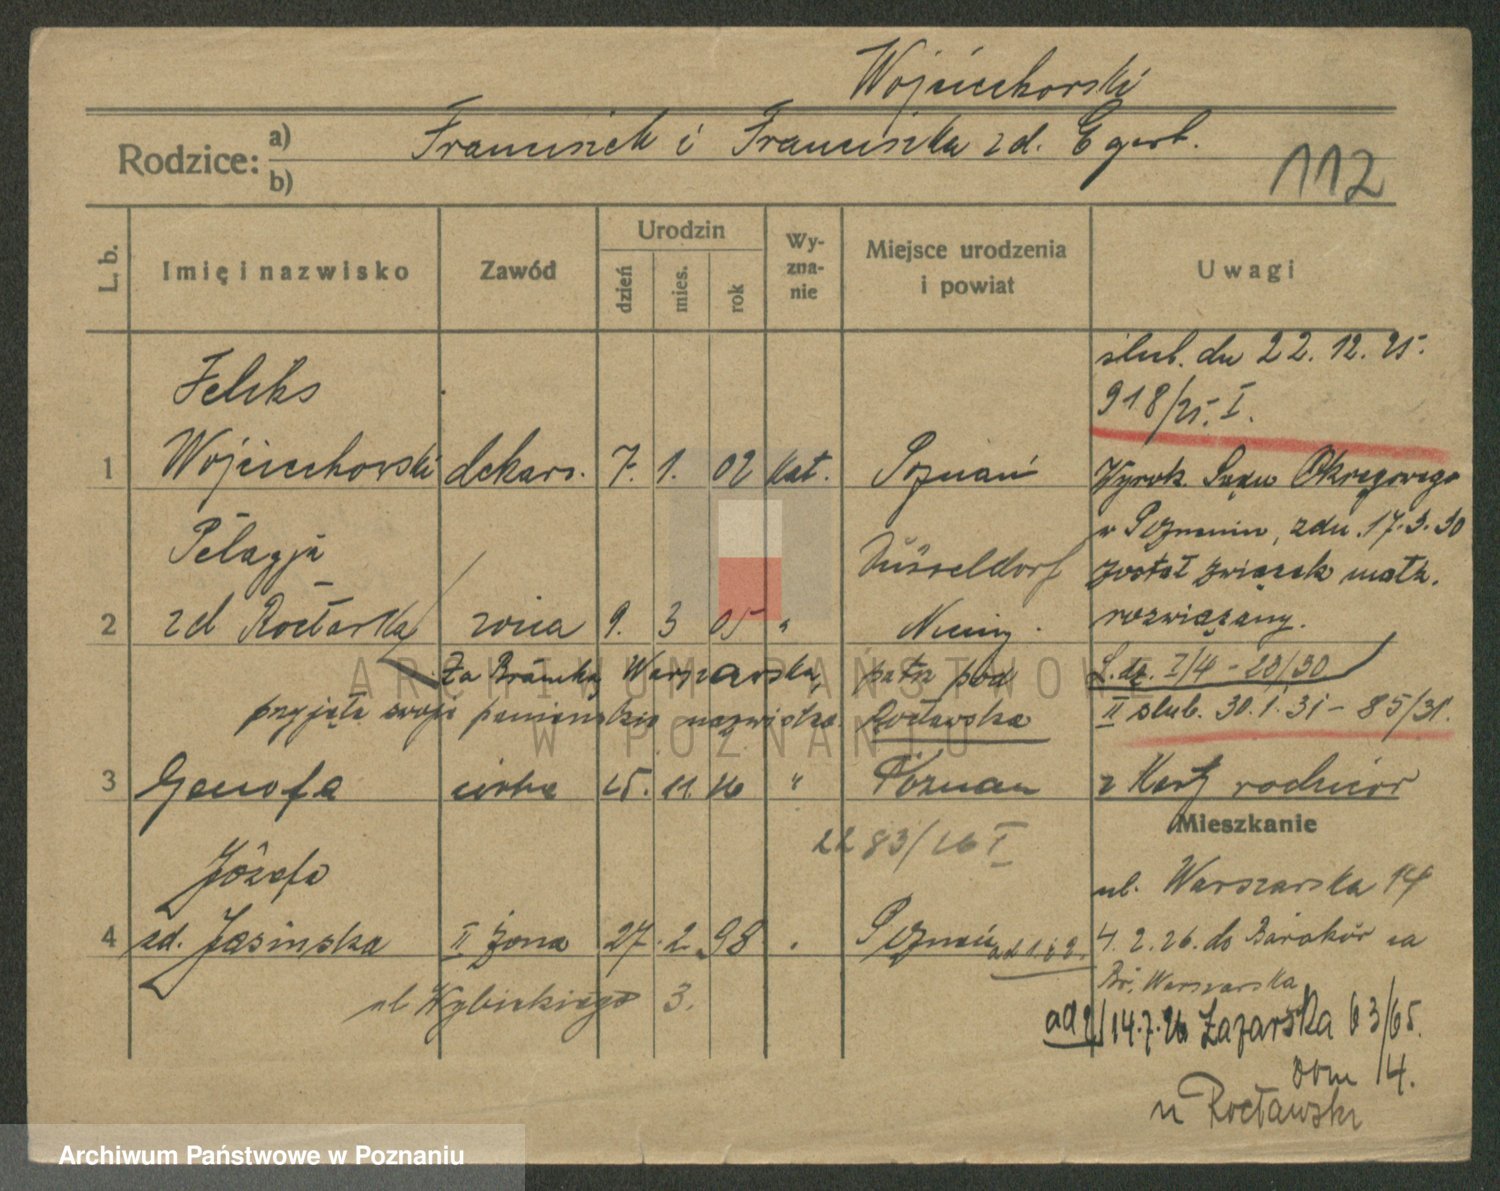 Wojciechowski
Rodzice: a) b)
Franciszek i Franciszka zd. Egert.
112
L. b.
Imię i nazwisko
Zawód
Urodzin
dzień
mies.
rok
Wy-
zna-
nie
Miejsce urodzenia
i powiat
Uwagi
ślub. dn 22. 12. 25.
918/25. I.
Feliks
1 Wojciechowski dekarz. 7. 1. 02 kat. Poznań
Wyrok. Sądu Okręgowego
w Poznaniu, zdn. 17.3.30
został związek małż.
rozwiązany.
L. dz. I/4 - 20/30
II ślub. 30.1.31 - 85/31.
Pelagja
Düsseldorf
2 zd Rocławska żona 9. 3 05 " Niemcy.
Za Bramką Warszawską, patrz pod
przyjęła swoje panieńskie nazwisko. Rocławska
3 Genofa córka 25. 11. 26 " Poznań
z Kart rodziców
2283/26 I
Mieszkanie
Józefa
4 zd. Jasińska II żona 27. 2. 98 . Poznań
ad 1. i 2.
ul. Warszawska 14
4. 2. 26. do Baraków za
Br. Warszawska
ul Wybickiego 3.
ad 2/ 14.7.26 Łazarska 63/65.
dom 14.
u Rocławski
ARCHIWUM PAŃSTWOWE
W POZNANIU
Archiwum Państwowe w Poznaniu